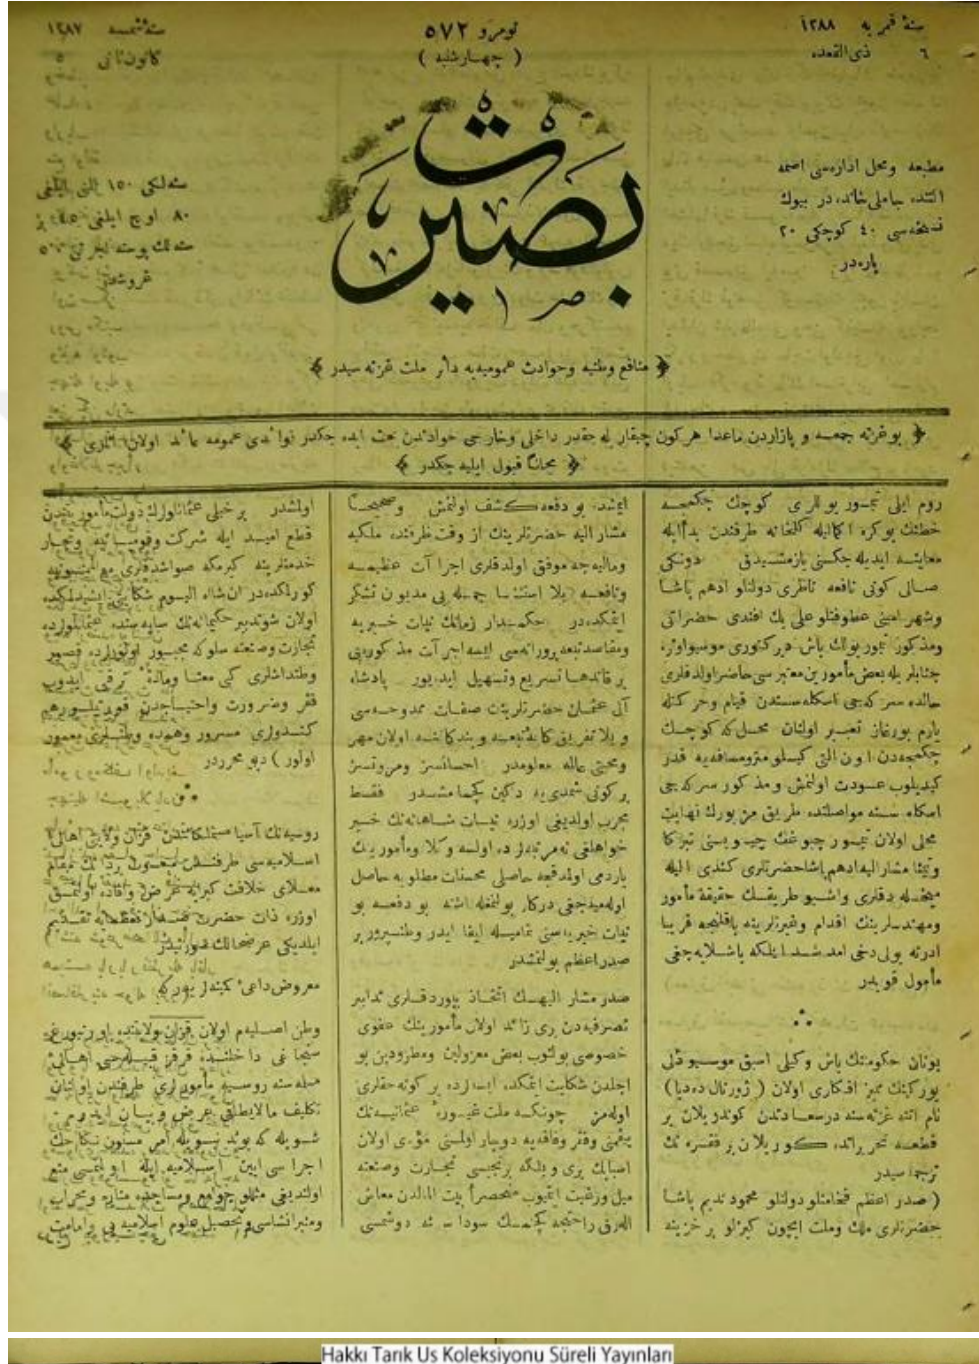 سنۀ قمریه ١٢٨٨
٦ ذی القعده
نومرو ٥٧٢
( چهارشنبه )
سنۀ شمسیه ١٢٨٧
كانون ثانی ٥
مطبعه ومحل اداره‌سی اصمه
التنده جاملی خانده‌در بیوك
نسخه‌سی ٤٠ كوچكی ٢٠
پاره‌در
بصیرت
سنه‌لكی ١٥٠ التی ایلغی
٨٠ اوچ ایلغی
سنه‌لك پوسته اجرتی
غروشدر
﴿ منافع وطنیه وحوادث عمومیه‌یه دائر ملت غزته‌سیدر ﴾
﴿ بو غزته جمعه و پازاردن ماعدا هركون چیقاریله‌جقدر داخلی وخارجی حوادثدن بحث ایده‌جكدر فوائدی عمومه عائد اولان اثاری ﴾
﴿ مجانا قبول ایلیه‌جكدر ﴾
روم ایلی تیمور یوللری كوچك چكمجه
خطنك بوكره اكمالیله طرفندن بدأ ایله
معاینه ایدیله‌جكنی یازمشیدق دونكی
صالی كونی نافعه ناظری دولتلو ادهم پاشا
وشهر امینی عطوفتلو علی بك افندی حضراتی
ومذكور تیمور یولك باش دیركتوری موسیو
جنابلریله بعض مأمورین معتبره‌سی حاضر اولدقلری
حالده سركه‌جی اسكله‌سندن قیام وحركتله
یارم بورغاز تعبیر اولنان محله كه كوچك
چكمجه‌دن اون التی كیلومترو مسافه‌یه قدر
كیدیلوب عودت اولنمش ومذكور سركه‌جی
اسكله‌سنه مواصلتده طریق مزبورك نهایت
محلی اولان تیمور چبوغك چیویسنی تبركا
وتیمنا مشار الیه ادهم پاشا حضرتلری كندی الیله
میخله‌دقلری واشبو طریقك حقیقة مأمور
ومهندسلرینك اقدام وغیرتلرینه باقلنجه قریبا
ادرنه یولی دخی امد شد ایتلكه باشلایه‌جغی
مأمول قویدر
یونان حكومتنك باش وكیلی اسبق موسیو دلی
یوركینك مبز افكاری اولان ( ژورنال ده‌دبا )
نام اتنه غزته‌سنه درسعادتدن كوندریلان بر
قطعه تحریراتده كوریلان بر فقره‌نك
ترجمه‌سیدر
( صدر اعظم فخامتلو دولتلو محمود ندیم پاشا
حضرتلری ملك وملت ایچون كیزلو بر خزینه
ایمشده بو دفعه كشف اولنمش وصحیحا
مشار الیه حضرتلرینك از وقت ظرفنده ملكیه
ومالیه‌جه موفق اولدقلری اجراآت عظیمه
ونافعه بلا استثنا جمله‌یی مدیون تشكر
ایتمكده‌در حكمدار زمانك نیات خیریه
ومقاصد تبعه پرورانه‌سی ایسه اجراآت مذكوره‌یی
بر قات دها تسریع وتسهیل ایدیور پادشاه
آل عثمان حضرتلرینك صفات ممدوحه‌سی
و بلا تفریق كافه تبعه و بندكاننه اولان مهر
ومحبتی عالمه معلومدر احسانسز ومروتسز
بر كونی شمدی‌یه دكین كچمامشدر فقط
مجرب اولدیغی اوزره نیات شاهانه‌نك خیر
خواهلغی نه مرتبه‌لرده اولسه وكلا ومأمورینك
یاردمی اولمدقجه حاصلی محسنات مطلوبه حاصل
اوله‌میه‌جغی دركار بولنمغله اشته بو دفعه بو
نیات خیریه‌سنی تمامیله ایفا ایدر وطنپرور بر
صدر اعظم بولنمشدر
صدر مشار الیهك اتخاذ بیوردقلری تدابیر
تصرفیه‌دن بری زائد اولان مأمورینك عفوی
خصوصی بولنوب بعض معزولین ومطرودین بو
اجلدن شكایت ایتمكده ایسه‌لرده بر كونه حقلری
اوله‌مز چونكه ملت غیوره عثمانیه‌نك
یتمنی وفقر وفاقه‌یه دوچار اولمسنی مؤدی اولان
اسبابك بری و بلكه برنجیسی تجارت وصنعته
میل ورغبت ایتمیوب منحصرا بیت المالدن معاش
الەرق راحتجه كچنمك سوداسنه دوشمسی
اولمشدر بر خیلی عثمانلولرك دولت مأموریتندن
قطع امید ایله شركت وقومپانیه وتجار
خدمتلرینه كیرمكه صواشدقلری مع الممنونیه
كورلمكده‌در ان‌شاالله الیوم شكایت ایشیدلمكده
اولان شو تدبیر حكیمانه‌نك سایه‌سنده عثمانلولرده
تجارت وصنعته سلوكه مجبور اولوب
وطنداشلری كی معنا ومادة ترقی ایدوب
فقر وضرورت واحتیاجدن قورتیلورلر هم
كندولری مسرور وهمده وطنلری معمور
اولور ) دیو محرردر
روسیه‌نك آسیا مستملكاتندن قزان ولایتی اهالئ
اسلامیه‌سی طرفندن مبعوث برذاتك مقام
معلای خلافت كبرایه عرض وافاده اولنمق
اوزره ذات حضرت تقدیم
ایلدیكی عرضحالك صورتیدر
معروض داعئ كمینه‌لریدركه
وطن اصلیه‌م اولان قزان ولایتنده
سنجاغی داخلنده قرقز قبیله‌جی اهالئ
مسلمه‌سنه روسیه مأمورلری طرفندن اولنان
تكلیف مالایطاقی عرض وبیان ایدرم
شویله كه بوندن بویله امر مسنون نكاحك
اجراسی ایین اسلامیه ایله اولنمسی منع
اولندیغی مثللو جوامع ومساجده مناره ومحراب
ومنبر انشاسی وتحصیل علوم اسلامیه‌یی وامامت
Hakkı Tarık Us Koleksiyonu Süreli Yayınları